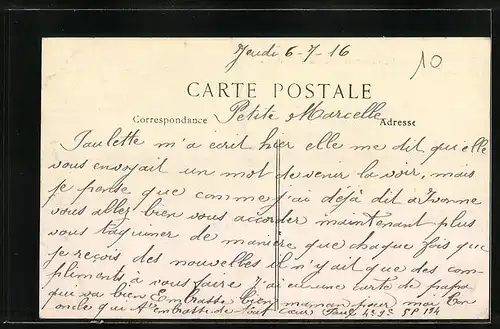 Jeudi 6-7-16
10
CARTE POSTALE
Correspondance Petite Marcelle Adresse
Paulette m'a ecrit hier elle me dit qu'elle
vous envoyait un mot de venir la voir, mais
je pense que comme j'ai déjà dit à Yvonne
vous allez bien vous accorder maintenant plus
vous taquiner de manière que chaque fois que
je reçois des nouvelles il n'y ait que des com-
pliments à vous faire J'ai eu une carte de papa
que va bien Embrasse bien maman pour moi Ton
oncle qui t'embrasse de tout cœur Paul